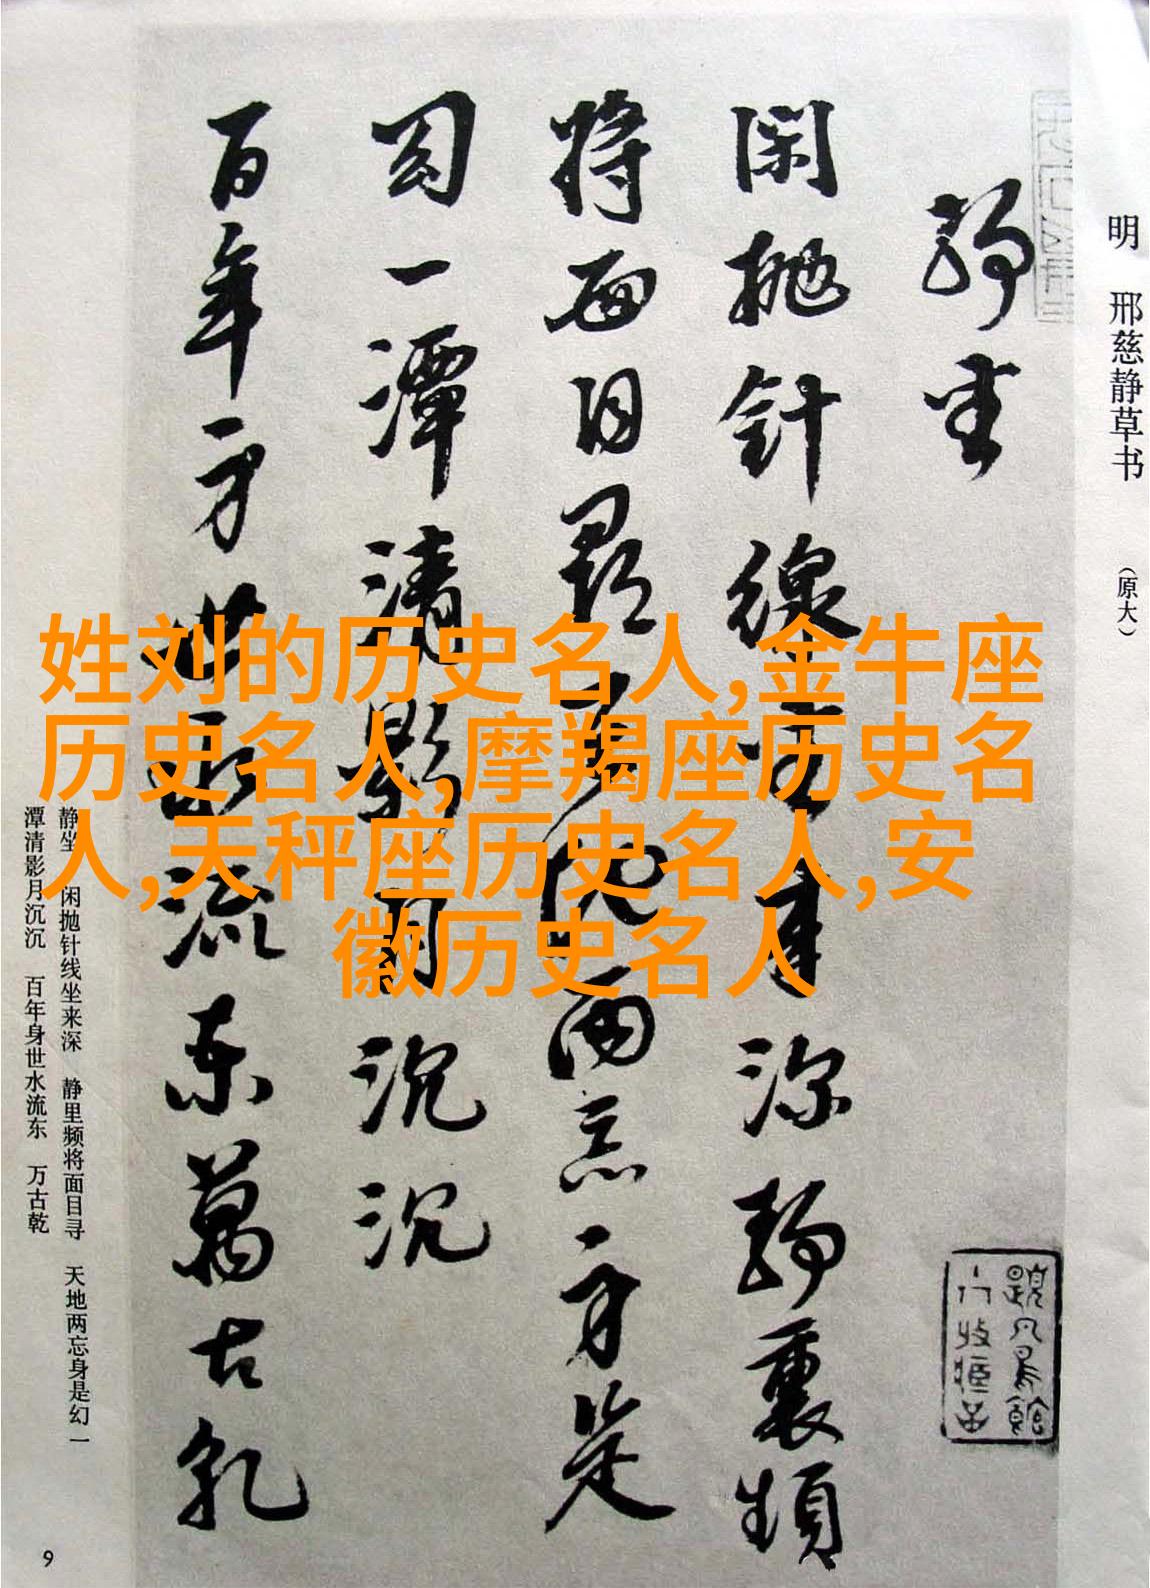 明 邢慈静草书 （原大）
静坐
闲抛针線坐来深静裏頻
将面目尋天地两忘身是
幻一潭清影月沉沉
百年身世水流东萬古乾
姓刘的历史名人,金牛座
历史名人,摩羯座历史名
人,天秤座历史名人,安
徽历史名人
静坐 闲抛针线坐来深 静里频将面目寻 天地两忘身是幻 一
潭清影月沉沉 百年身世水流东 万古乾
9